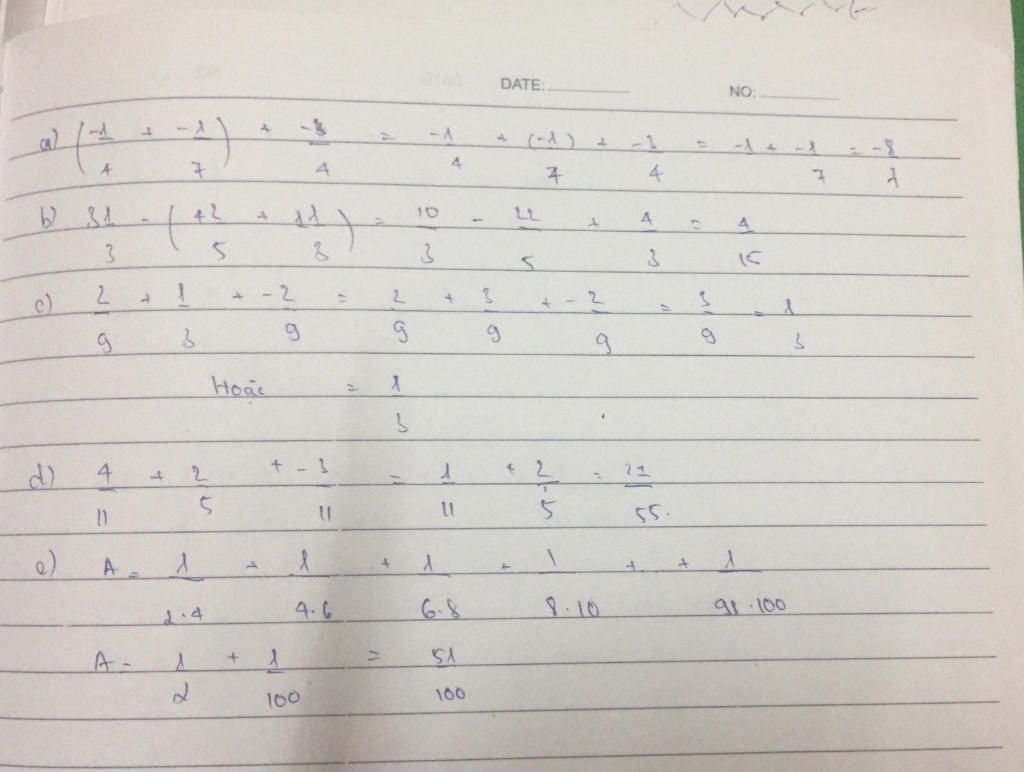 DATE: NO:
a) (-1/4 + -1/7) + -3/4 = -1/4 + (-1)/7 + -3/4 = -1 + -1/7 = -8/7
b) 31/3 - ( 42/5 + 11/3 ) = 10/3 - 22/5 + 4/3 = 4/15
c) 2/9 + 1/3 + -2/9 = 2/9 + 3/9 + -2/9 = 3/9 = 1/3
Hoặc = 1/3
d) 4/11 + 2/5 + -3/11 = 1/11 + 2/5 = 27/55.
e) A = 1/2.4 + 1/4.6 + 1/6.8 + 1/8.10 + + 1/98.100
A = 1/2 + 1/100 = 51/100